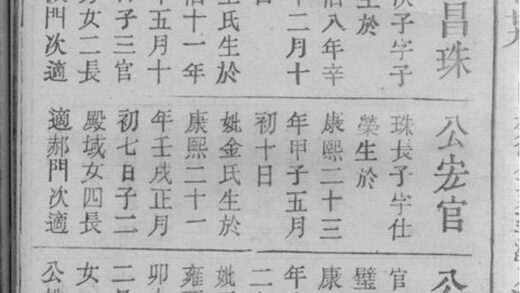 昌珠
次子字子
生於
治八年辛
年二月十
金氏生於
治十一年
年五月十
子三官
女二長
門次適
公宏官
珠長子字仕
榮生於
康熙二十三
年甲子五月
初十日
妣金氏生於
康熙二十一
年壬戌正月
初七日子二
殿域女四長
適郝門次適
公
官
璧
康
年
二
妣
雍
卯
二
女
公